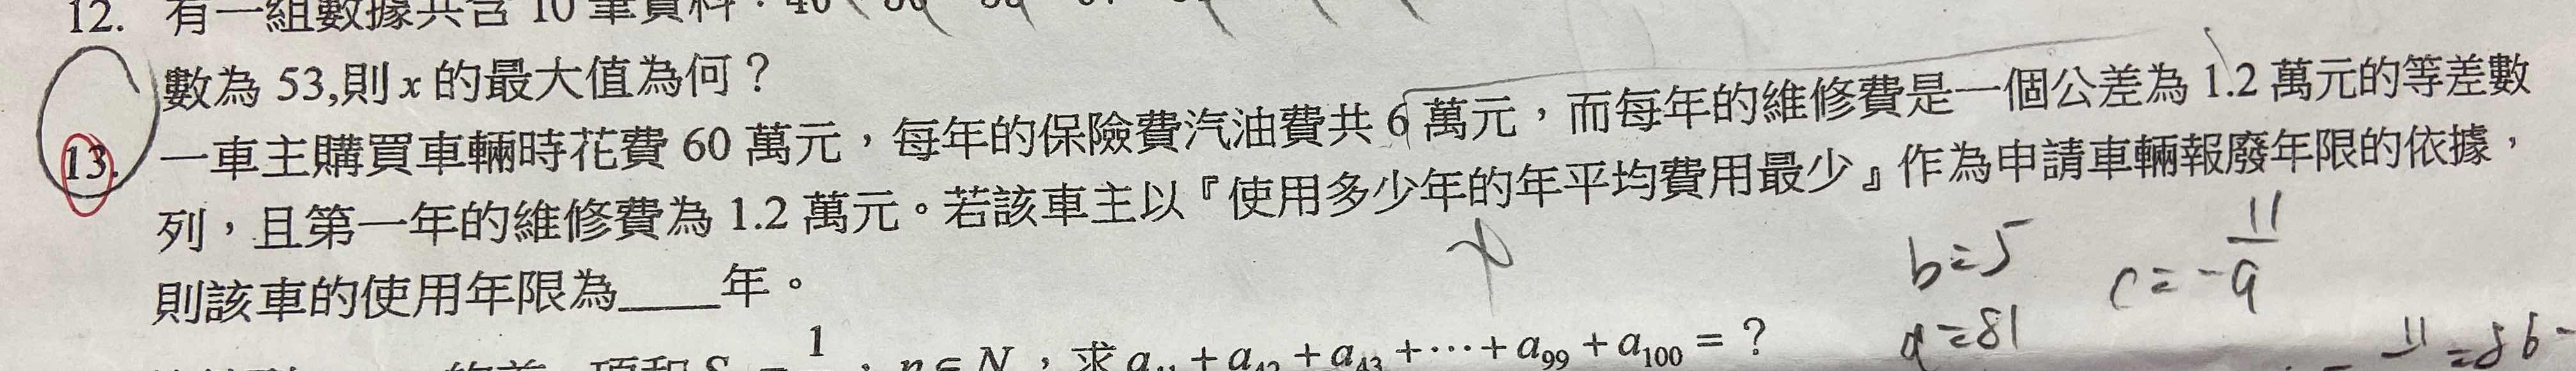 12. 有一組數據共含 10 筆資料：40
數為 53,則 x 的最大值為何？
13. 一車主購買車輛時花費 60 萬元，每年的保險費汽油費共 6 萬元，而每年的維修費是一個公差為 1.2 萬元的等差數
列，且第一年的維修費為 1.2 萬元。若該車主以『使用多少年的年平均費用最少』作為申請車輛報廢年限的依據，
則該車的使用年限為____年。
b=5
c=-11/9
a=81
1
，求 a₄₁ + a₄₂ + a₄₃ + ⋯ + a₉₉ + a₁₀₀ = ？